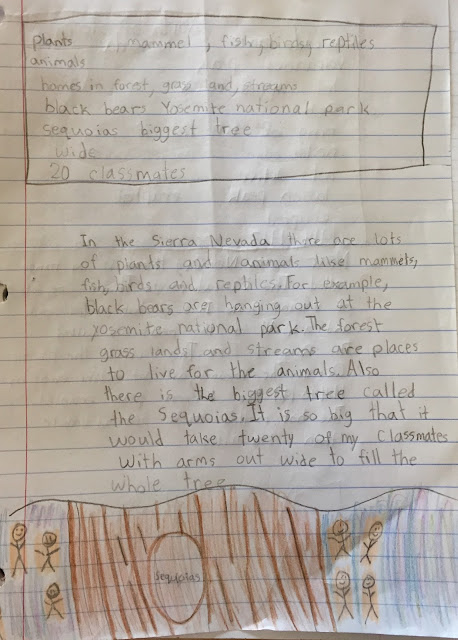 plants , mammel, fish, birds, reptiles
animals
homes in forest, grass and, streams
black bears Yosemite national park
sequoias biggest tree
wide
20 classmates
In the Sierra Nevada there are lots
of plants and animals like mammels,
fish, birds and reptiles. For example,
black bears are hanging out at the
yosemite national park. The forest
grass lands and streams are places
to live for the animals. Also
there is the biggest tree called
the Sequoias. It is so big that it
would take twenty of my classmates
with arms out wide to fill the
whole tree.
Sequoias